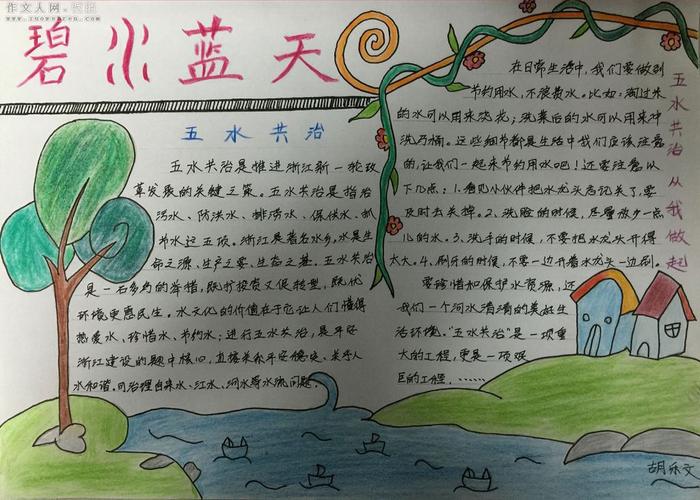 作文人网·校报
www.zuowenren.com
碧水蓝天
五水共治
五水共治是推进浙江新一轮改
革发展的关键之策。五水共治是指治
污水、防洪水、排涝水、保供水、抓
节水这五项。浙江是著名水乡，水是生
命之源、生产之要、生态之基。五水共治
是一石多鸟的举措，既扩投资又促转型，既优
环境更惠民生。水文化的价值在于它让人们懂得
热爱水、珍惜水、节约水；进行五水共治，是平安
浙江建设的题中核心，直接关系平安稳定、关乎人
水和谐。可治理自来水、江水、河水等水流问题。
五水共治从我做起
在日常生活中，我们要做到
节约用水，不浪费水。比如：淘过米
的水可以用来浇花；洗菜后的水可以用来冲
洗马桶。这些细节都是生活中我们应该注意
的，让我们一起来节约用水吧！还要注意以
下几点：1.看见小伙伴把水龙头忘记关了，要
及时去关掉。2、洗脸的时候，尽量放少一点
儿的水。3、洗手的时候，不要把水龙头开得
太大。4、刷牙的时候，不要一边开着水龙头一边刷。
要珍惜和保护水资源，还
我们一个河水清清的美好生
活环境。“五水共治”是一项重
大的工程，更是一项艰
巨的工程，……
胡乐文